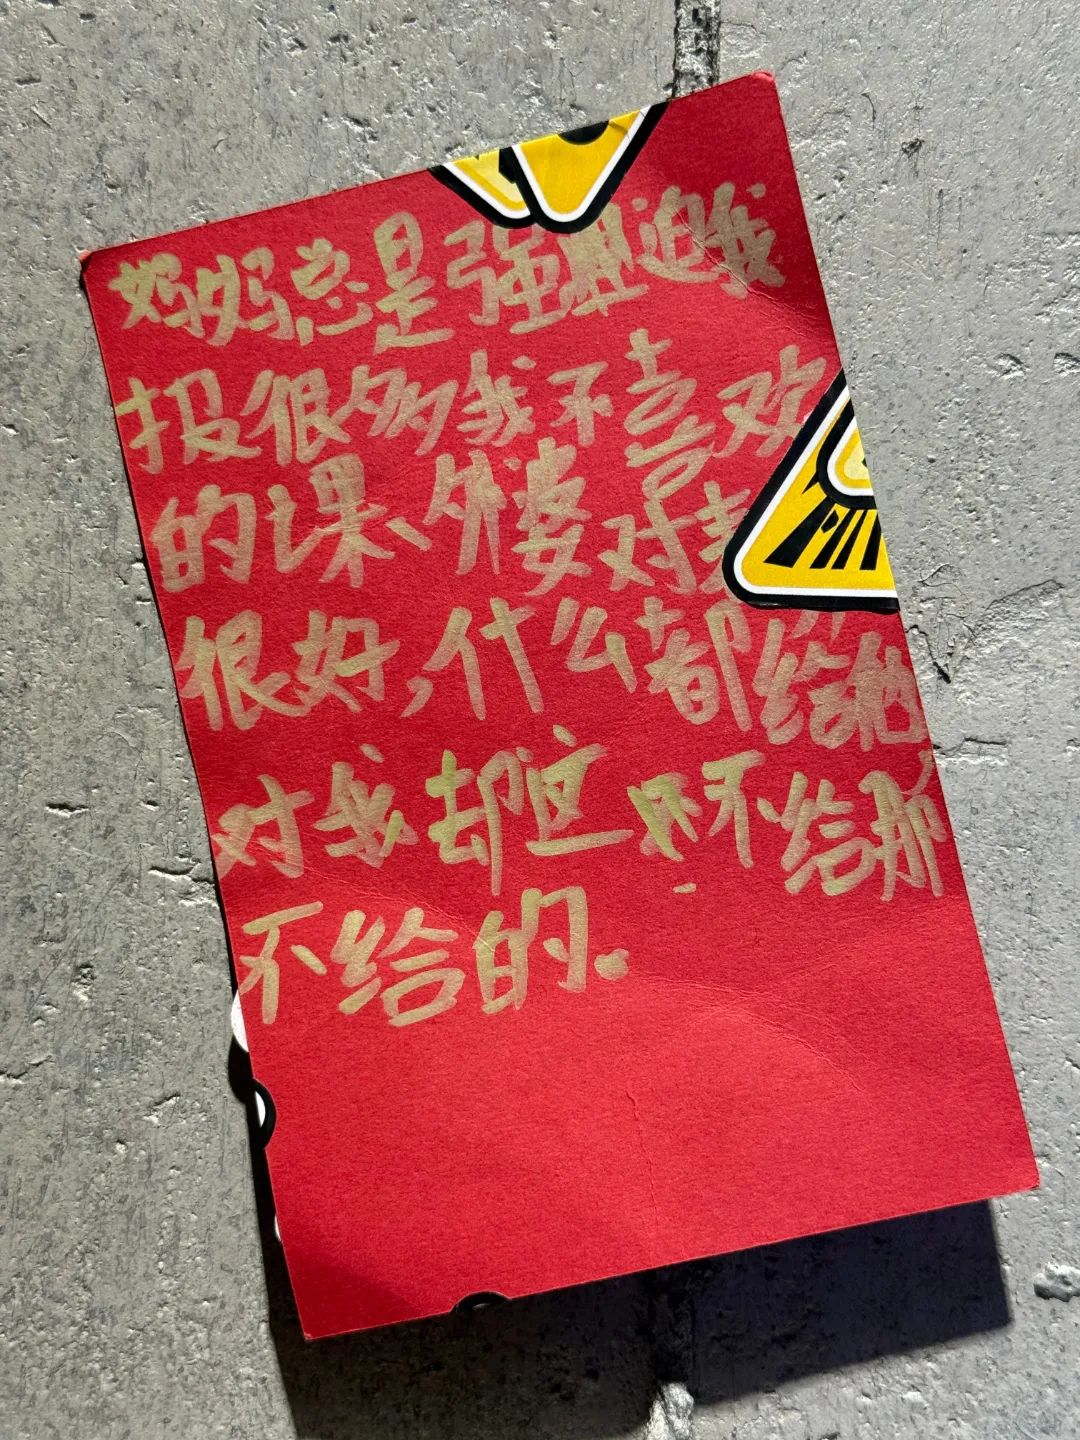 妈妈总是强迫我
报很多我不喜欢
的课、外婆对表
很好,什么都给他
对我却这不给那
不给的.